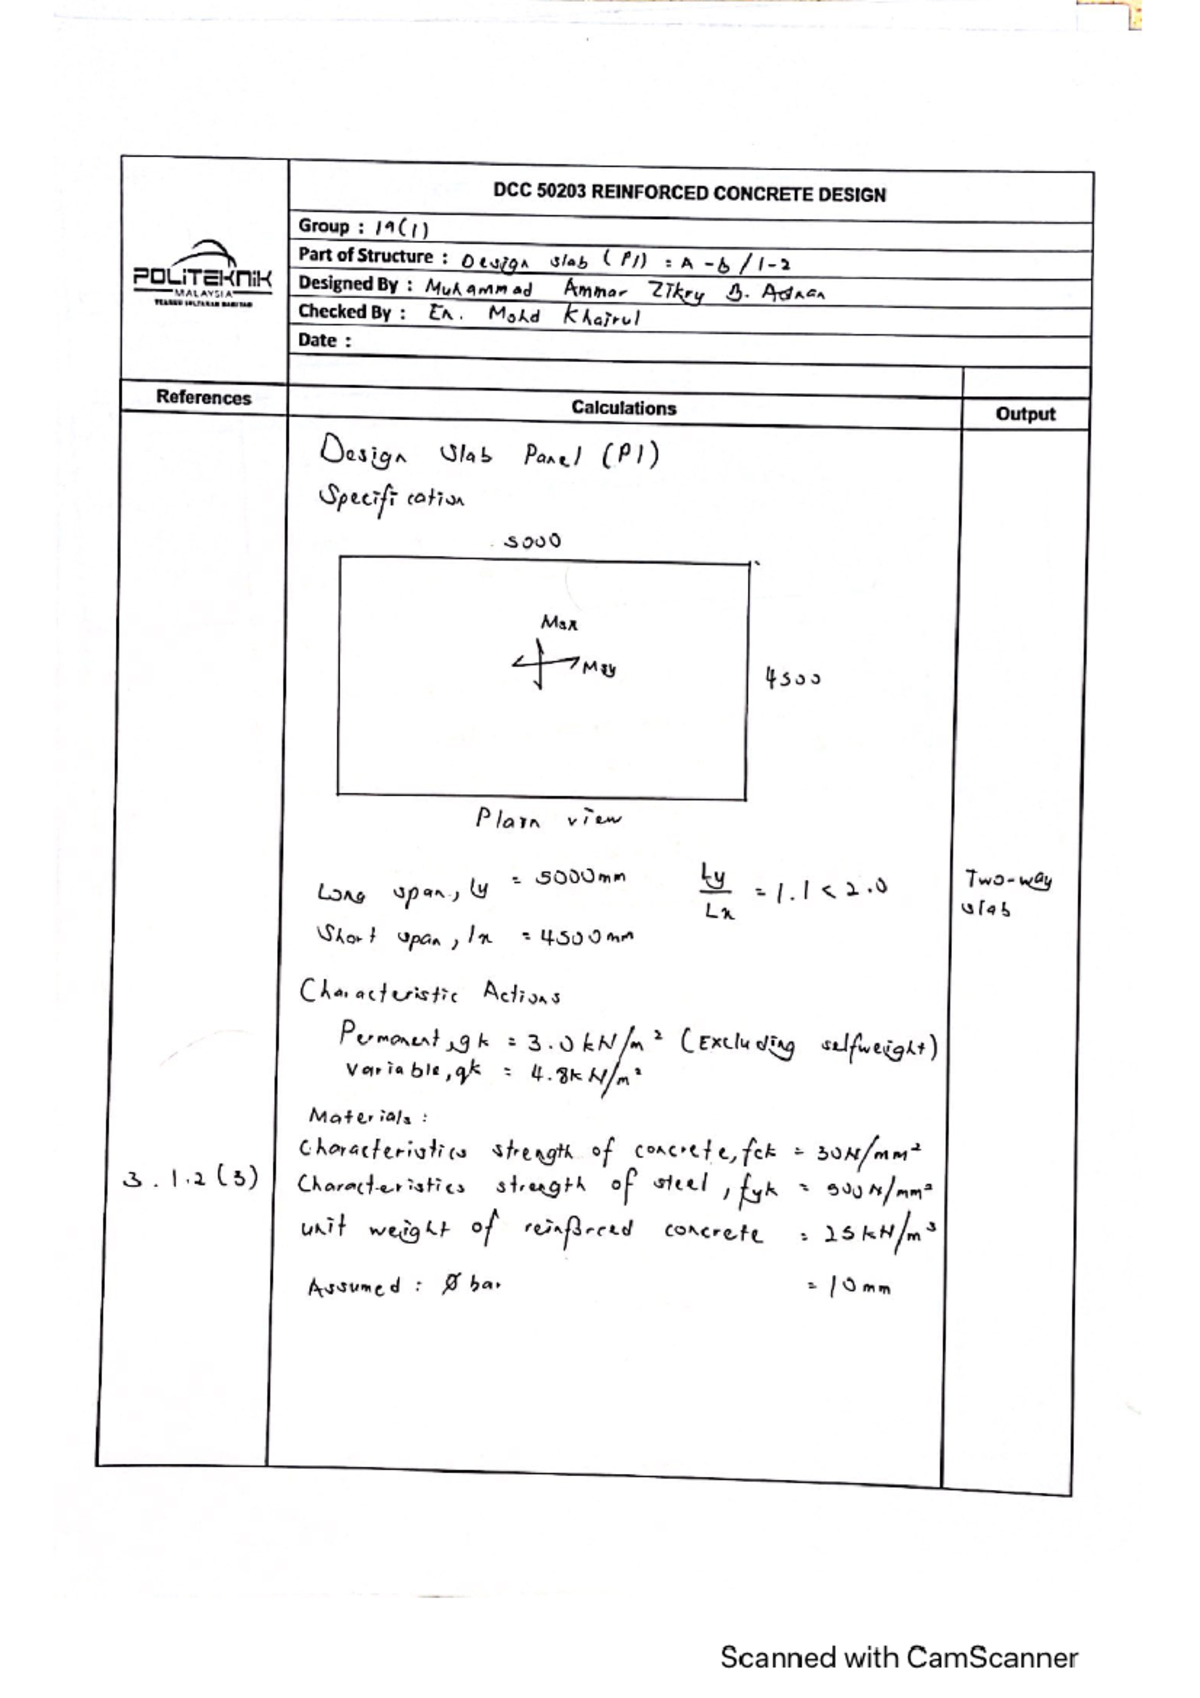 DCC 50203 REINFORCED CONCRETE DESIGN
Group : 19(1)
Part of Structure : Design slab (P1) : A-b / 1-2
Designed By : Muhammad Ammar Zikry B. Adnan
Checked By : En. Mohd Khairul
Date :
POLiTEKNiK
MALAYSIA
References
Calculations
Output
Design Slab Panel (P1)
Specification
5000
Msx
Msy
4500
Plan view
Long span, ly = 5000mm
Ly/Lx = 1.1 < 2.0
Two-way
slab
Short span, lx = 4500mm
Characteristic Actions
Permanent, gk = 3.0 kN/m² (Excluding selfweight)
Variable, qk = 4.8kN/m²
Materials :
Characteristics strength of concrete, fck = 30N/mm²
3.1.2(3)
Characteristics strength of steel, fyk = 500N/mm²
unit weight of reinforced concrete = 25kN/m³
Assumed : Ø bar = 10mm
Scanned with CamScanner